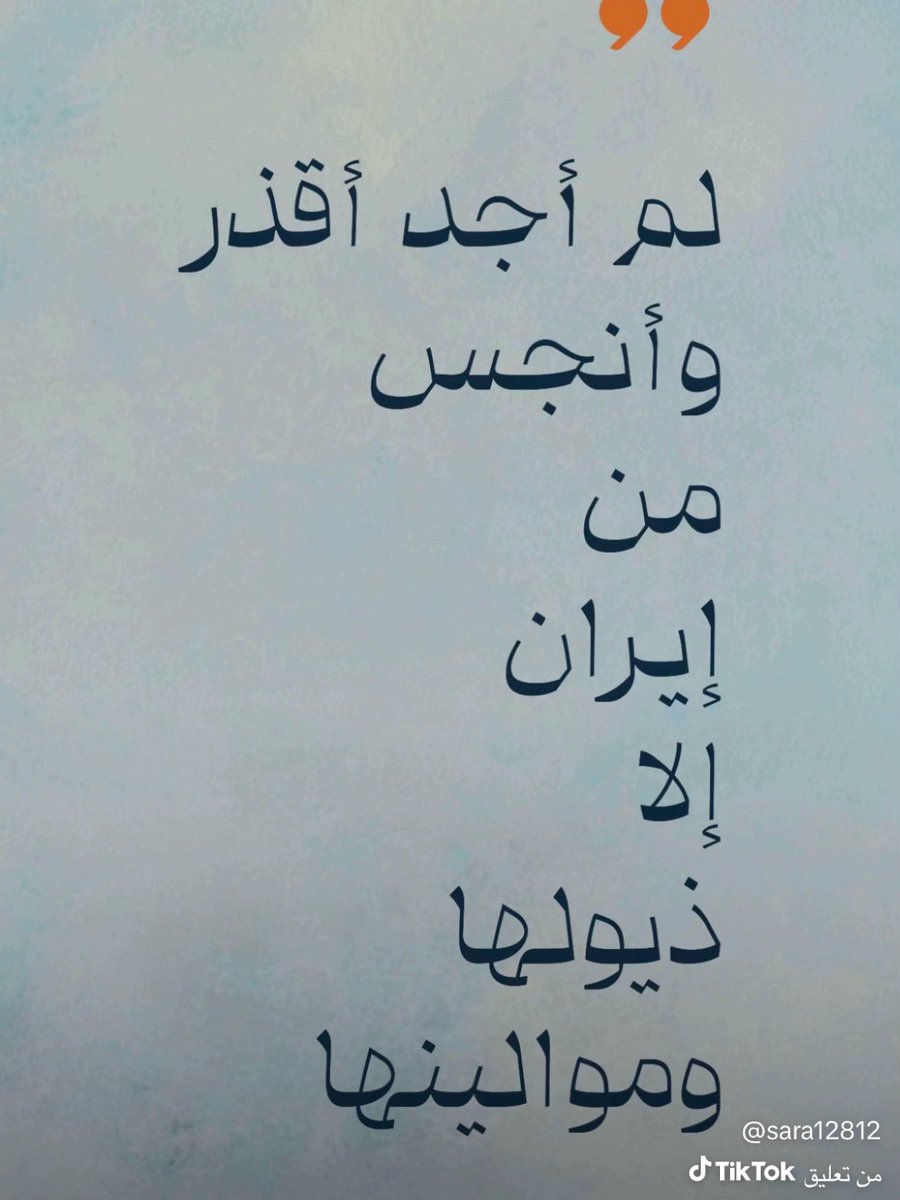 ❜❜
لم أجد أقذر
وأنجس
من
إيران
إلا
ذيولها
ومواالينها
@sara12812
TikTok من تعليق